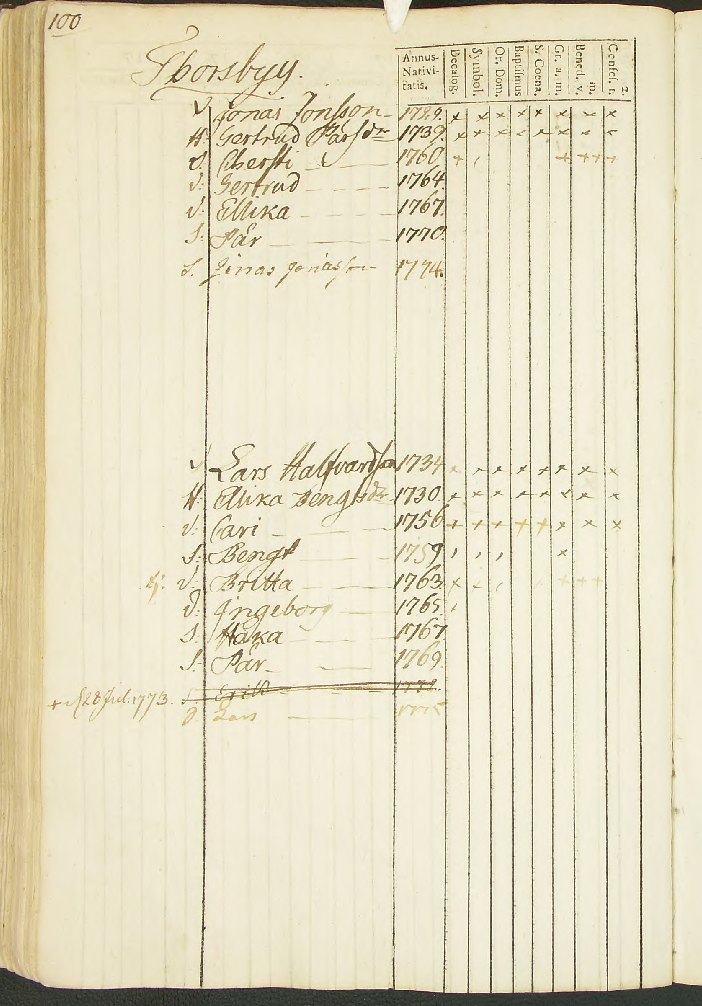 100
Thorsbyy.
Annus Nativitatis. Decalog. Symbol. Or. Dom. Baptismus S. Coena. Gr. a. m. Bened. v. m. Confes. r. 2.
Jonas Jonsson 1729. x x x x x x x x
H. Gertrud Pärsdr 1739. x x x x x x x x
d. Chersti 1760 + , + + + +
d: Gertrud 1764.
d: Ellika 1767.
S: Pär 1770.
S. Jonas Jonasson 1774.
Lars Halfvardson 1734 x x x x x x x x
H. Ellika Bengtsdr 1730. x x x x x x x x
d: Cari 1756 + + + + + x x x
S: Bengt 1759 , , , x
d: Britta 1763 x , , , + + +
d: Ingeborg 1765. ,
S: 1767
S: Pär 1769
+ d 28 Jul. 1773. S:
Lars 1775